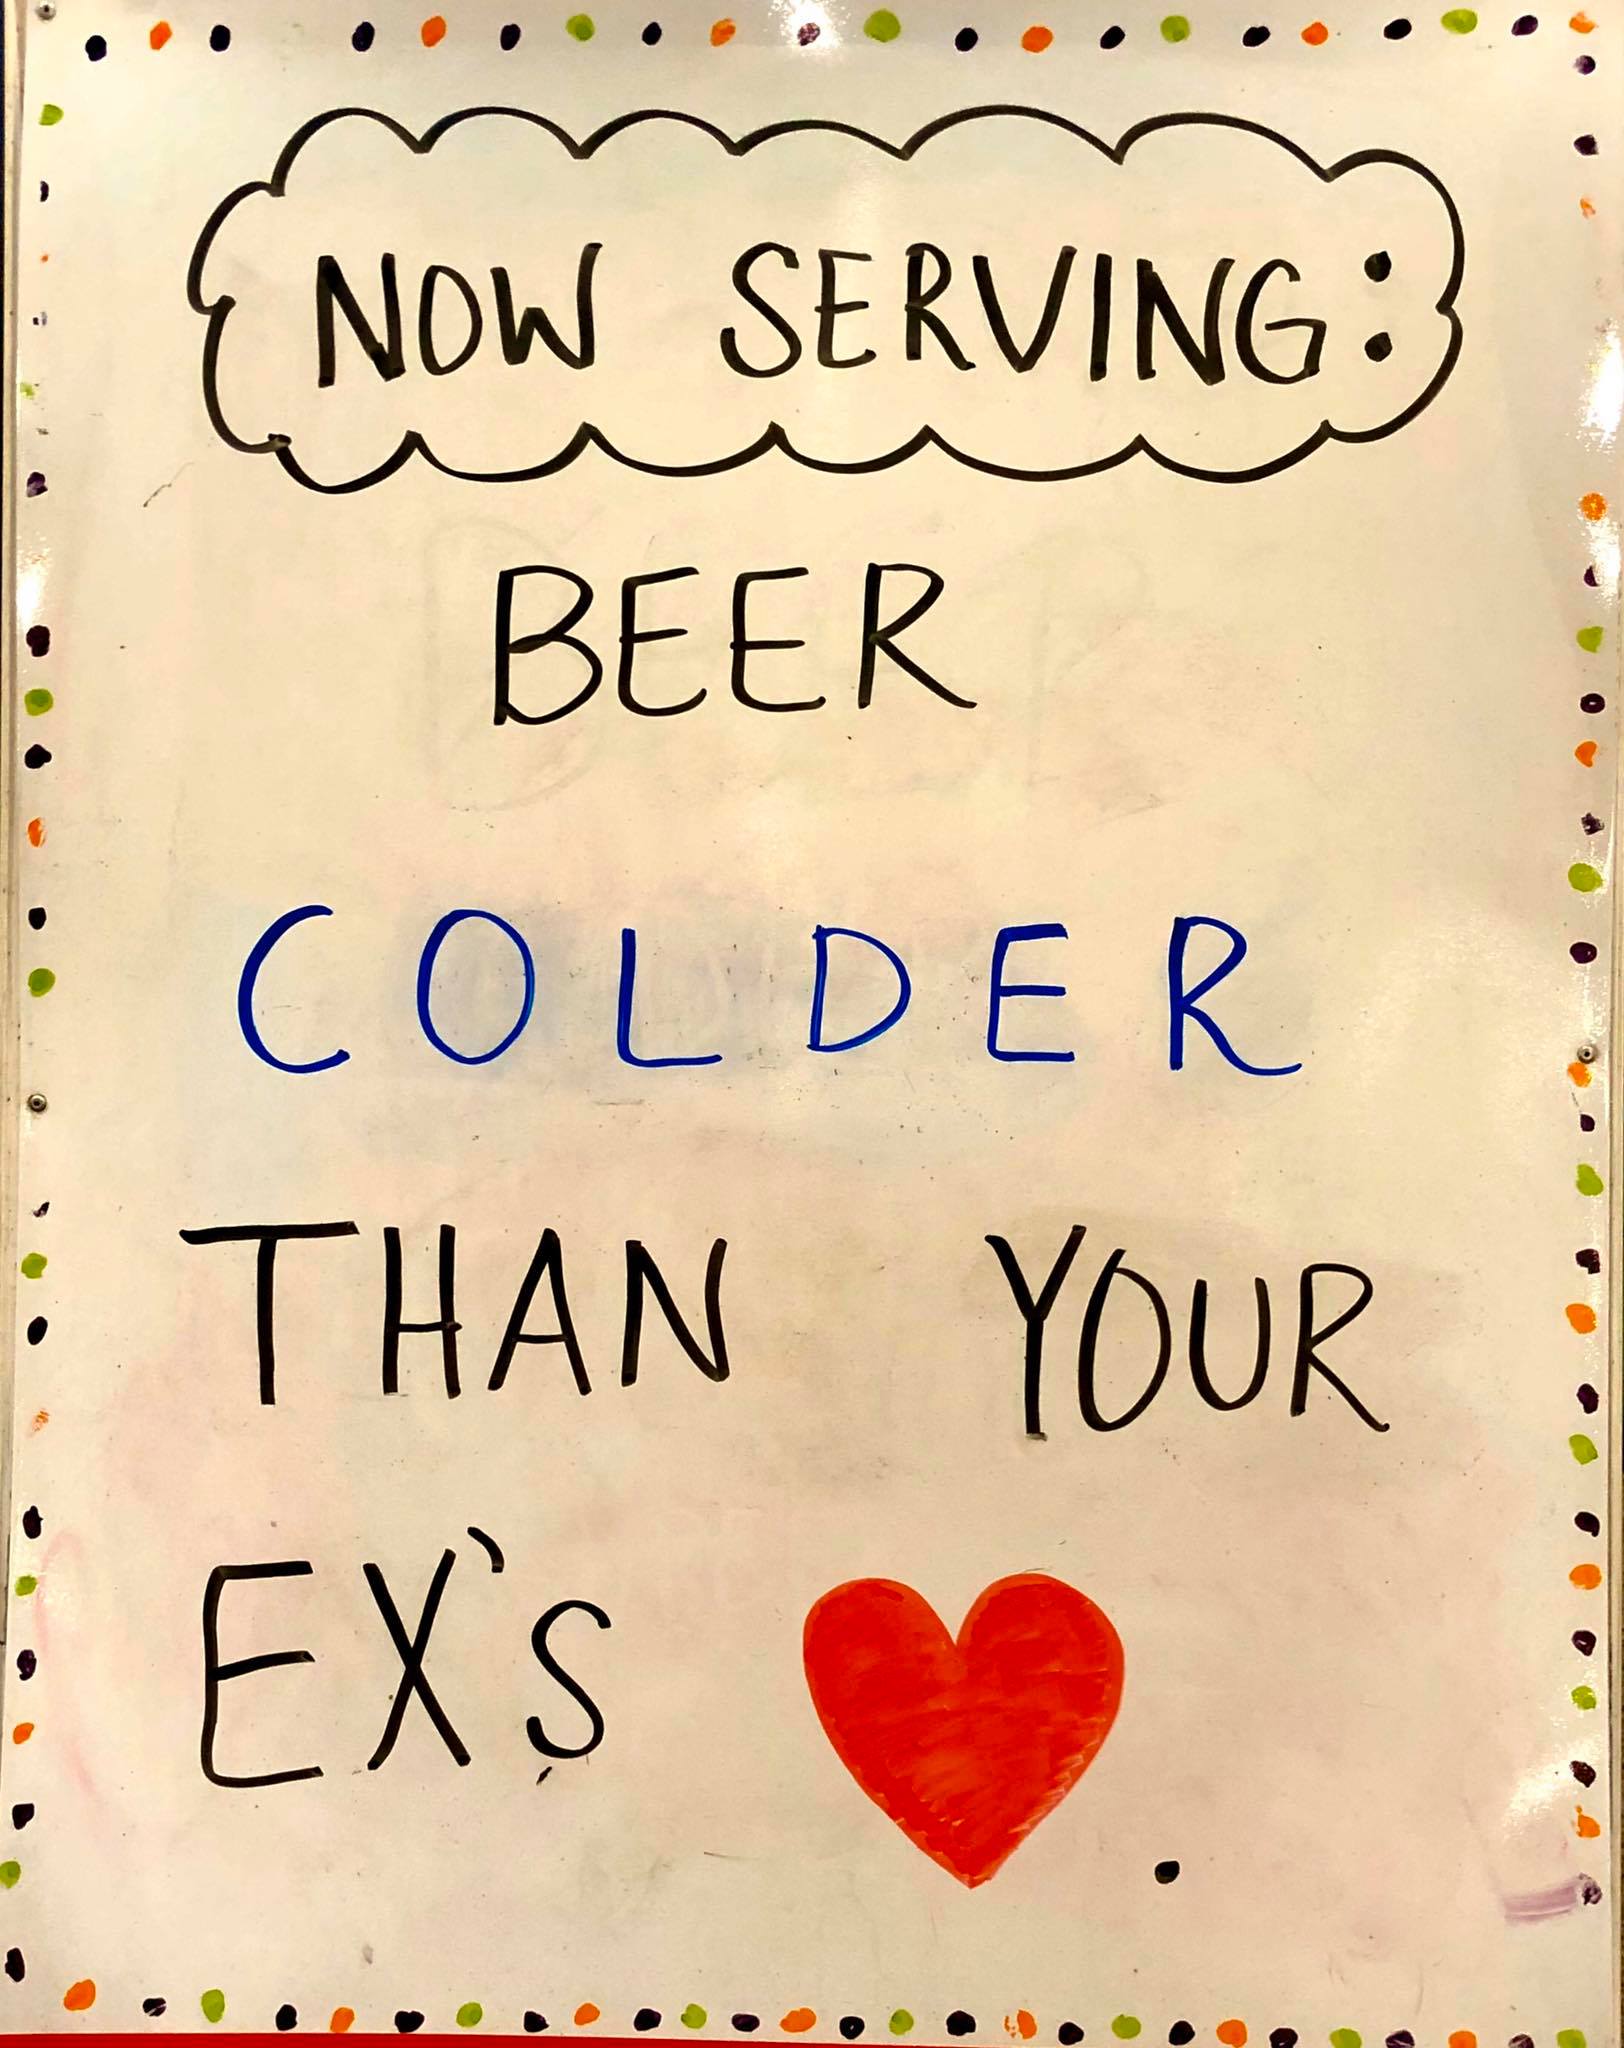 NOW SERVING:
BEER
COLDER
THAN YOUR
EX'S ❤.